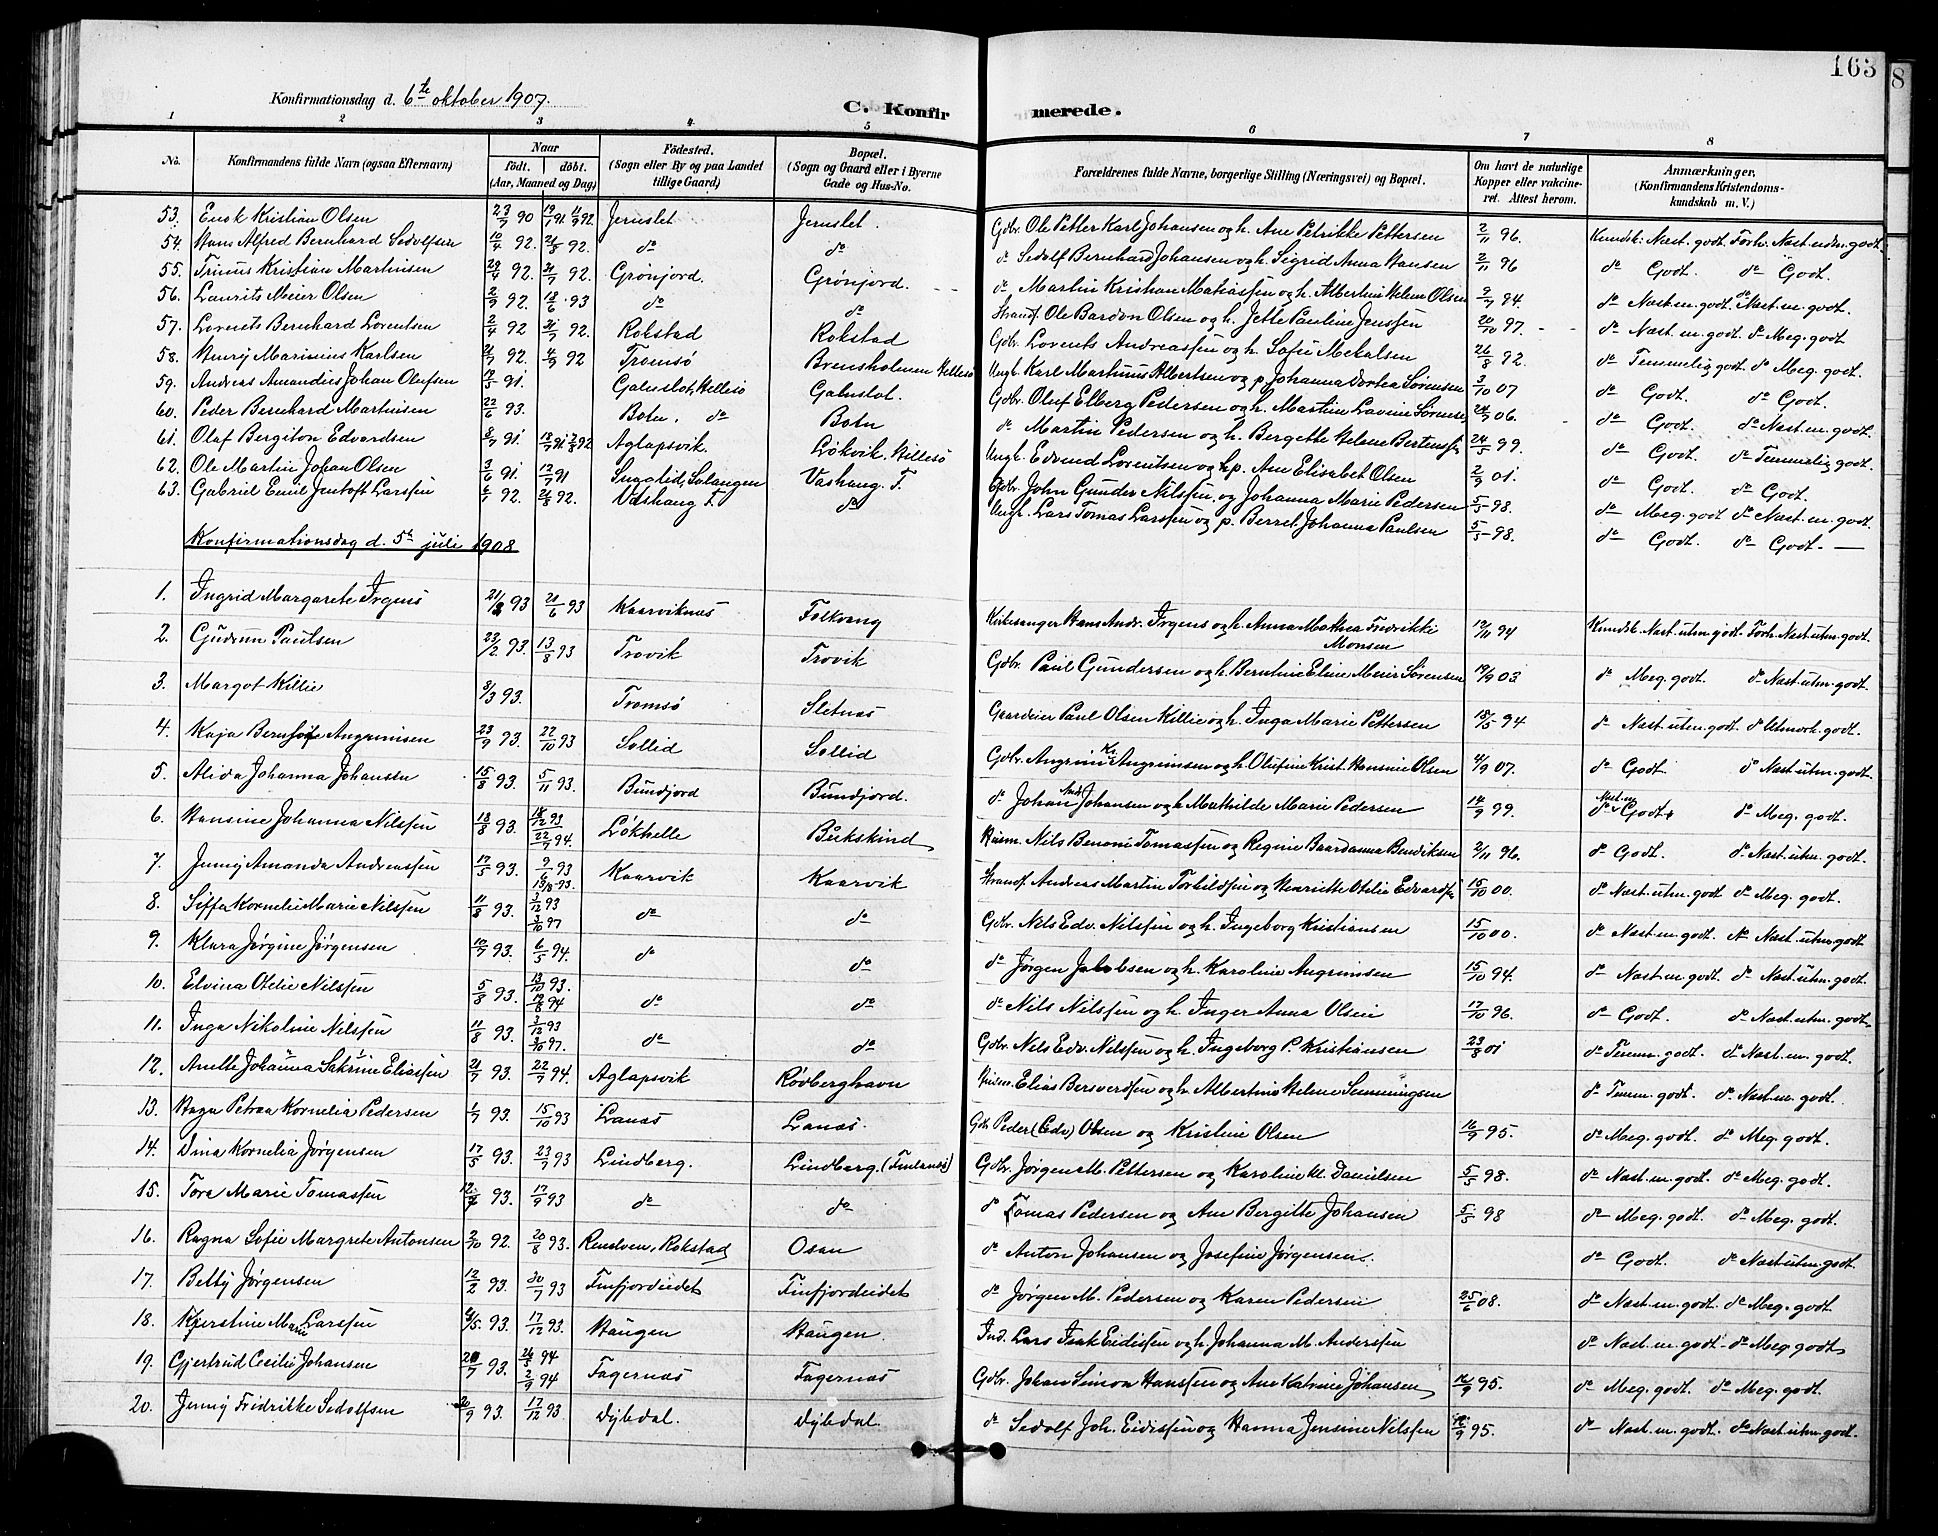 163
8
Konfirmationsdag d. 6te oktober 1907.
C. Konfirmerede.
1 2 3 4 5 6 7 8
No. Konfirmandens fulde Navn (ogsaa Efternavn) Naar født. døbt. (Aar, Maaned og Dag) Födested. (Sogn eller By og paa Landet tillige Gaard) Bopæl. (Sogn og Gaard eller i Byerne Gade og Hus-No. Forældrenes fulde Navne, borgerlige Stilling (Næringsvei) og Bopæl. Om havt de naturlige Kopper eller vakcineret. Attest herom. Anmærkninger, (Konfirmandens Kristendomskundskab m. V.)
53. Enok Kristian Olsen 23/7 90 19/1 91 11/9 92. Jernslet Jernslet. Gdbr. Ole Petter Karl Johansen og h. Ane Petrikke Pettersen 2/11 96. Kundsk. Næst. godt. Forh. Næst. udm. godt.
54. Hans Alfred Bernhard Sedolfsen 10/4 92. 21/8 92. do do do Sedolf Bernhard Johansen og h. Sigrid Anna Hansen 2/11 96 do Godt. do Godt.
55. Trinus Kristian Martinsen 29/4 92. 31/7 92. Grønjord. Grønjord. do Martin Kristian Matiassen og h. Albertine Helene Olsen 9/7 94. do Næst. m. godt. do Næst. m. godt.
56. Laurits Meier Olsen 2/9 92. 18/6 93 do do Strands. Ole Bardon Olsen og h. Jette Pauline Jenssen 20/10 97. do Næst. m. godt. do Meg. godt
57. Lorents Bernhard Lorentsen 2/4 92 31/7 92. Rokstad Rokstad Gdbr. Lorents Andreassen og h. Sofie Mekalsen 26/8 92. do Temmelig godt. do Meg. godt.
58. Henry Marinius Karlsen 21/7 92. 4/9 92 Tromsø Brensholmen Hillesø Ungk. Karl Martinus Albertsen og p. Johanna Dortea Sørensen 3/10 07 do Godt. do Godt.
59. Andreas Amandius Johan Olufsen 19/5 91. Galnslot, Hillesø Galnslot. Gdbr. Oluf Elberg Pedersen og h. Martine Lavine Sørensen 06. do Godt. do Næst. m. godt.
60. Peder Bernhard Martinsen 22/6 93. Botn. do Botn do Martin Pedersen og h. Bergette Helene Bertenssen 24/5 99. do Godt. do Temmelig godt.
61. Olaf Bergiton Edvardsen 8/7 91 Aglapsvik. Løkvik. Hillesø Ungk. Edvard Lorentsen og p. Ane Elisabet Olsen 2/9 01. do Godt. do Godt.
62. Ole Martin Johan Olsen 3/6 91 12/7 91 Salangen Vashaug. T. Gdbr. John Gunder Nilssen, og Johanna Marie Pedersen 5/5 98. do Meg. godt. do Næst. m. godt.
63. Gabriel Emil Jentoft Larssen 92. 92. Vashaug T. do Ungk. Lars Tomas Larssen og p. Berret Johanna Paulsen 5/5 98. do Godt. do Godt.
Konfirmationsdag d. 5te juli 1908
1. Ingrid Margarete Irgens 93 20/6 93 Kaarviknes Folkvang Kirkesanger Hans Andr. Irgens og h. Anna Mathea Fredrikke Monsen 94 Kundsk. Næst. utm. godt. Forh. Næst. utm. godt.
2. Gudrun Paulsen 23/2 93. 13/8 93 Trovik Trovik Gdbr. Paul Gundersen og h. Berntine Eline Meier Sørensen 19/9 03 do Meg. godt. do Næst. utm. godt.
3. Margot Killie 3/3 93. Tromsø Sletnes Gaardeier Paul Olsen Killie og h. Inga Marie Pettersen 18/5 94 do Næst. utm. godt do Utmerk. godt.
4. Kaja Angrimsen 23/9 93. 22/10 93 Sollid Sollid Gdbr. Angrim Kr. Angrimsen og h. Olufine Krist. Hansine Olsen 4/9 07. do Godt do Næst. utm. godt.
5. Alida Johanna Johansen 15/8 93. 5/11 93. Bundjord Bundjord. do Johan Johansen og h. Mathilde Marie Pedersen 14/9 99. do Næst. m. Godt do Meg. godt.
6. Hansine Johanna Nilssen 18/8 93. 18/12 93 22/7 94. Løkhelle Bukskind Husm. Nils Benoni Tomassen og Regine Baardanna Bendiksen 2/11 96. do Godt. do Næst. utm. godt.
7. Jenny Amanda Andreassen 17/5 93. 93 93. Kaarvik Kaarvik Strands. Andreas Martin Torkildsen og Henriette Otelie Edvardsen 15/10 00. do Næst. utm. godt do Meg. godt.
8. Siffa Kornelie Marie Nilssen 11/8 93. 3/12 93 3/10 97 do do Gdbr. Nils Edv. Nilssen og h. Ingeborg Kristiansen 15/10 00. do Næst. m. godt. do Næst. utm. godt
9. Klara Jørgine Jørgensen 10/7 93. 6/5 94. do do do Jørgen Jakobsen og h. Karoline Angrimsen 15/10 94. do Næst. m. godt. do Næst. utm. godt.
10. Elvina Otelie Nilssen 5/8 93. 93. 94 do do do Nils Nilssen og h. Inger Anna Olsen 17/10 96. do Godt. do Næst. utm. godt.
11. Inga Nikoline Nilssen 11/8 93. 3/12 93 3/10 97. do do Gdbr. Nils Edv. Nilssen og h. Ingeborg P. Kristiansen 23/8 01 do Temm. godt. do Næst. m. godt.
12. Anette Johanna Sakrine Eliassen 21/7 93. 22/7 94. Aglapsvik Rødberghavn Husm. Elias Bersvendsen og h. Albertine Helene do Temm. godt. do Næst. m. godt.
13. Petraa Kornelia Pedersen 1/7 93. 15/10 93 Lanes Lanes. Gdbr. Peder (Edv) Olsen og Kristine Olsen 16/9 95. do Meg. godt. do Meg. godt.
14. Dina Kornelia Jørgensen 17/5 93. 23/7 93 Lindberg. Lindberg. Gdbr. Jørgen M. Pettersen og Karoline Kl. Danielsen 5/5 98. do Næst. m. godt. do Meg. godt.
15. Tora Marie Tomassen 93. 17/9 93 do do do Tomas Pedersen og Ane Bergitte Johansen 5/5 98 do Meg. godt. do Meg. godt.
16. Ragna Sofie Margrete Antonsen 2/10 92. 20/8 93. Rokstad Osen do Anton Johansen og Josefine Jørgensen. do Godt. do Næst. utm. godt.
17. Betty Jørgensen 12/2 93. 30/7 93 Finfjordeidet Finfjordeidet do Jørgen M. Pedersen og Karen Pedersen 25/6 08. do Næst. m. godt. do Meg. godt.
18. Kjerstine Marie Larssen 6/5 93. 17/12 93. Haugen Haugen. Ind. Lars Isak Eidissen og h. Johanna M. Anderssen do Næst. m. godt. do Meg. godt
19. Gjertrud Cecilie Johansen 93. 94 2/9 94 Fagernes Fagernes Gdbr. Johan Simon Hanssen og Ane Katrine Johansen 16/9 95. do Meg. godt. do Meg. godt.
20. Jenny Fridrikke Sedolfsen 20/9 93. 17/12 93. Dybdal. Dybdal. do Sedolf Joh. Eidissen og Hanna Jensine Nilssen 16/9 95. do Næst. m. godt. do Næst. utm. godt.